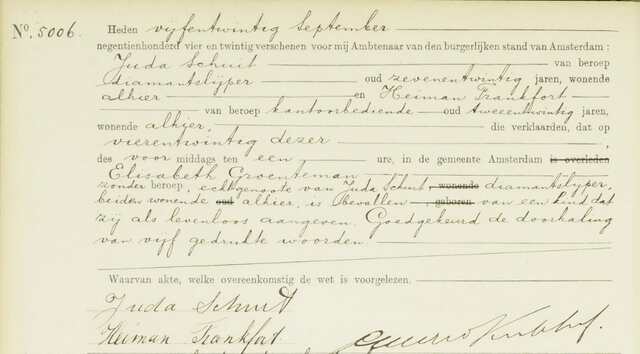 No. 5006. Heden vijfentwintig September
negentienhonderd vier en twintig verschenen voor mij Ambtenaar van den burgerlijken stand van Amsterdam:
Juda Schuit van beroep
diamantslijper oud zevenentwintig jaren, wonende
alhier en Heiman Frankfort
van beroep kantoorbediende oud tweeentwintig jaren,
wonende alhier, die verklaarden, dat op
vierentwintig dezer
des voor middags ten een ure, in de gemeente Amsterdam is overleden
Elisabeth Groenteman
zonder beroep, echtgenoote van Juda Schuit, wonende diamantslijper,
beiden wonende oud alhier, is bevallen geboren van een kind dat
zij als levenloos aangeven. Goedgekeurd de doorhaling
van vijf gedrukte woorden.
Waarvan akte, welke overeenkomstig de wet is voorgelezen.
Juda Schuit
Heiman Frankfort.